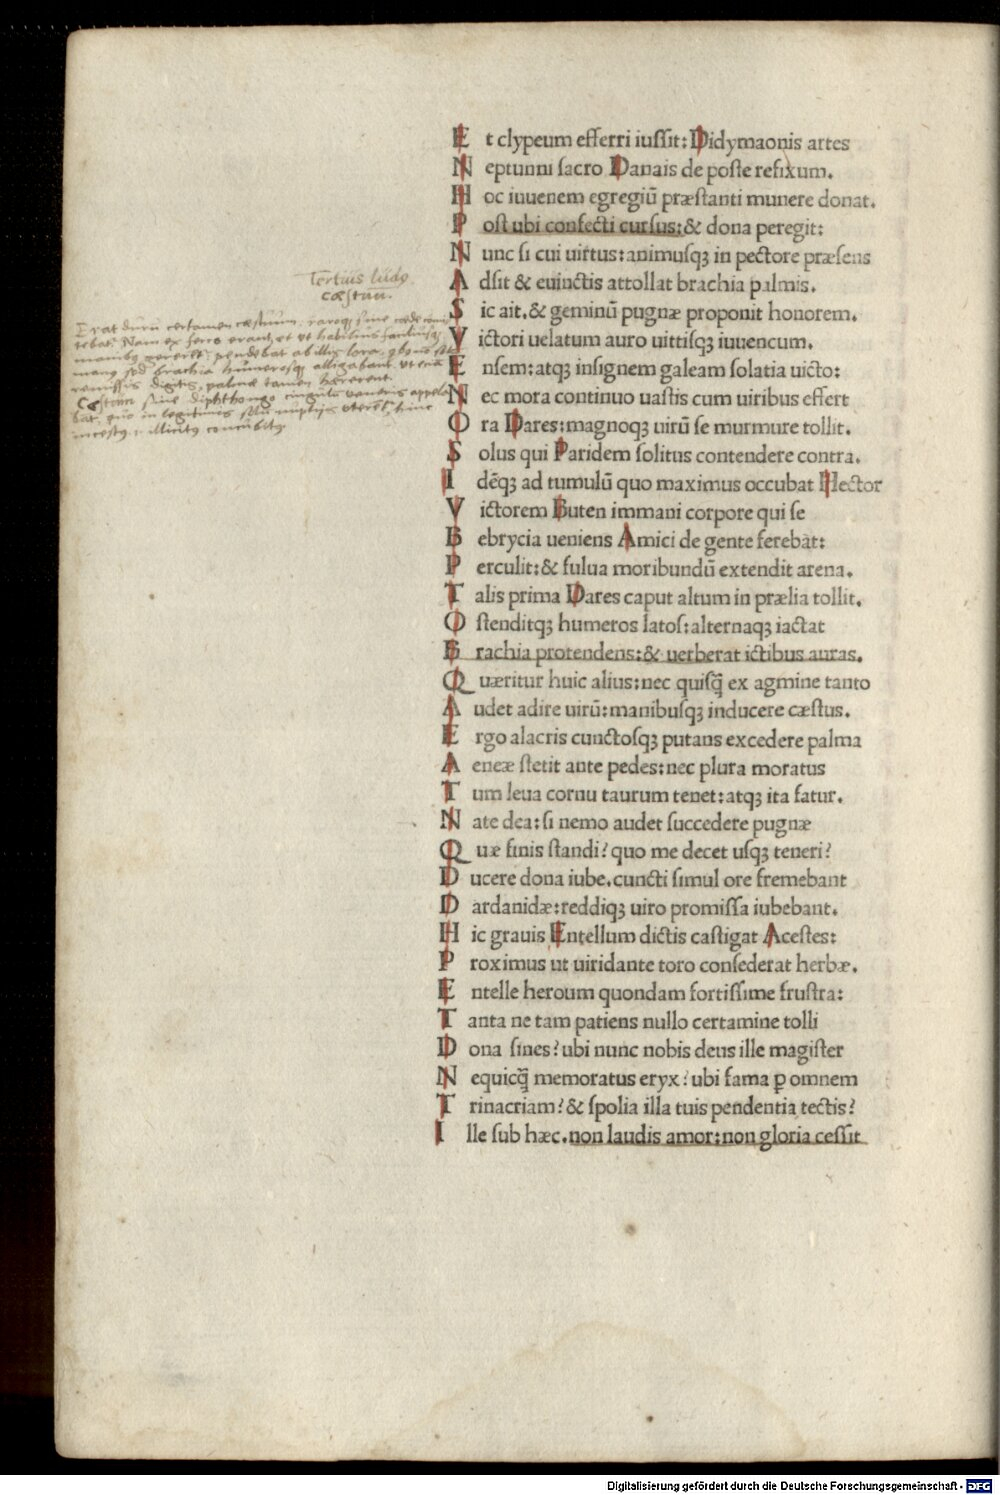 Et clypeum efferri iuſſit: Didymaonis artes
Neptunni ſacro Danais de poſte refixum.
Hoc iuuenem egregiū præſtanti munere donat.
Poſt ubi confecti curſus: & dona peregit:
Nunc ſi cui uirtus: animuſqꝫ in pectore præſens
Adſit & euinctis attollat brachia palmis.
Sic ait. & geminū pugnæ proponit honorem.
Victori uelatum auro uittiſqꝫ iuuencum.
Enſem: atqꝫ inſignem galeam ſolatia uicto:
Nec mora continuo uaſtis cum uiribus effert
Ora Dares: magnoqꝫ uirū ſe murmure tollit.
Solus qui Paridem ſolitus contendere contra.
Idēqꝫ ad tumulū quo maximus occubat Hector
Victorem Buten immani corpore qui ſe
Bebrycia ueniens Amici de gente ferebat:
Perculit: & fulua moribundū extendit arena.
Talis prima Dares caput altum in prælia tollit.
Oſtenditqꝫ humeros latoſ: alternaqꝫ iactat
Brachia protendens: & uerberat ictibus auras.
Quæritur huic alius: nec quiſq̄ ex agmine tanto
Audet adire uirū: manibuſqꝫ inducere cæſtus.
Ergo alacris cunctoſqꝫ putans excedere palma
Aeneæ ſtetit ante pedes: nec plura moratus
Tum leua cornu taurum tenet: atqꝫ ita fatur.
Nate dea: ſi nemo audet ſuccedere pugnæ
Quæ finis ſtandi? quo me decet uſqꝫ teneri?
Ducere dona iube. cuncti ſimul ore fremebant
Dardanidæ: reddiqꝫ uiro promiſſa iubebant.
Hic grauis Entellum dictis caſtigat Aceſtes:
Proximus ut uiridante toro conſederat herbæ.
Entelle heroum quondam fortiſſime fruſtra:
Tanta ne tam patiens nullo certamine tolli
Dona ſines? ubi nunc nobis deus ille magiſter
Nequicq̄ memoratus eryx? ubi fama ꝑ omnem
Trinacriam? & ſpolia illa tuis pendentia tectis?
Ille ſub hæc. non laudis amor: non gloria ceſſit
Tertius ludꝰ
cæſtuū.
Erat durū certamen cæſtuum, raroqꝫ ſine cæde
Nam ex ferro erant, et ut habilius
manibꝰ pendebat ab illis lora
brachia humeroſqꝫ alligabant
remiſſis digitis, palmæ tamen hærerent.
Cæſtum ſine diphthongo cingulū Veneris
quo in legitimis nuptijs
inceſtꝰ illicitꝰ concubitꝰ
Digitalisierung gefördert durch die Deutsche Forschungsgemeinschaft - DFG